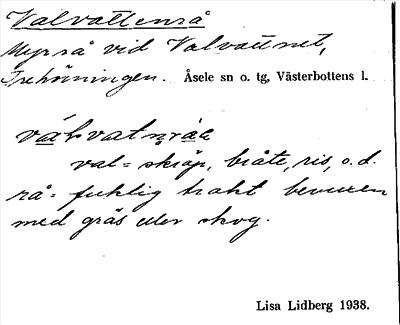 Valvattenrå
Myrrå vid Valvattnet,
Trehörningen. Åsele sn o. tg, Västerbottens l.
val = skräp, bråte, ris, o. d.
rå = fuktig trakt bevuxen
med gräs eller skog.
Lisa Lidberg 1938.